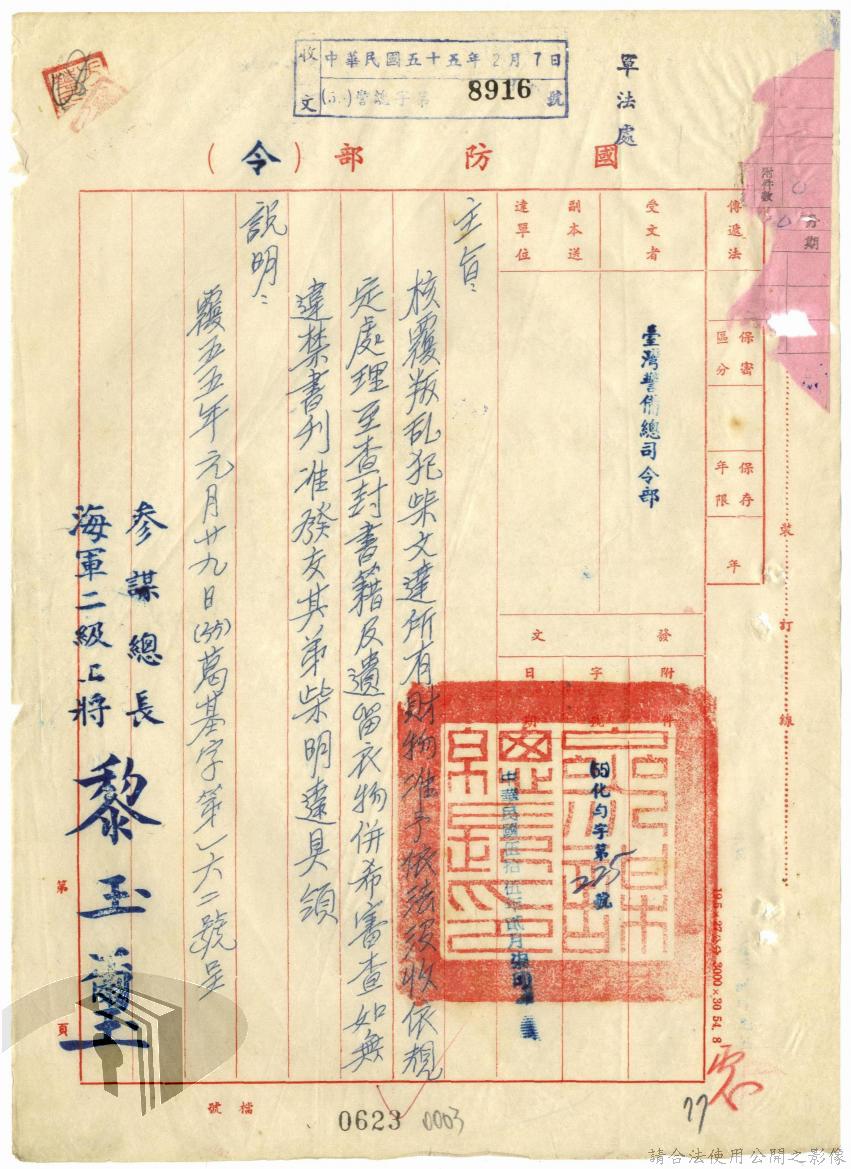 收文
中華民國五十五年2月7日
警總字第 8916 號
軍法處
國防部（令）
附件數
0
傳遞法
保密區分
保存年限
年
受文者
臺灣警備總司令部
副本送達單位
發文
附件
字號
(55)化勻字第225號
日期
中華民國伍拾伍年貳月
主旨：
核覆叛乱犯柴文達所有財物准予依法没收依規
定處理至查封書籍及遺留衣物併希審查如無
違禁書刋准發交其弟柴明達具領
說明：
覆五五年元月廿九日(55)葛基字第一六二號呈
參謀總長
海軍二級上將
黎玉璽
裝訂線
19.5×27公分 3000×30 54. 8
第
頁
檔號
0623
0003
77
請合法使用公開之影像